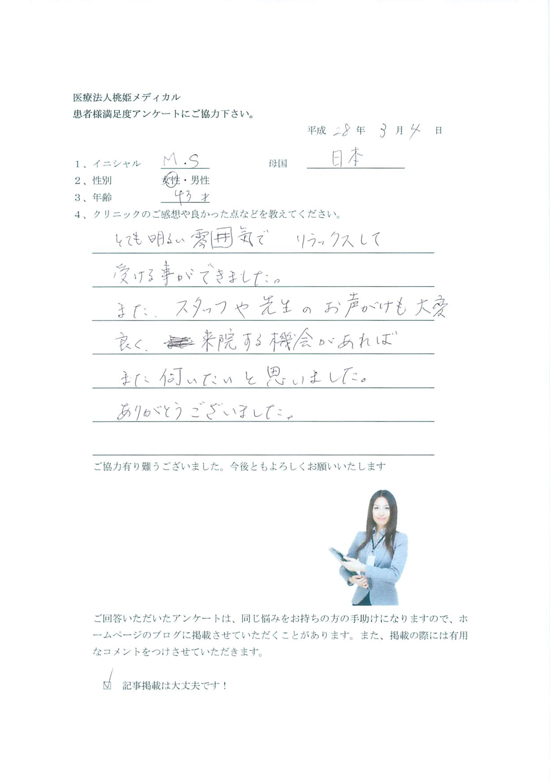 医療法人桃姫メディカル
患者様満足度アンケートにご協力下さい。
平成 28 年 3 月 4 日
1、イニシャル M.S 母国 日本
2、性別 女性・男性
3、年齢 43 才
4、クリニックのご感想や良かった点などを教えてください。
とても明るい雰囲気で リラックスして
受ける事ができました。
また、スタッフや先生のお声がけも大変
良く、来院する機会があれば
また伺いたいと思いました。
ありがとうございました。
ご協力有り難うございました。今後ともよろしくお願いいたします
ご回答いただいたアンケートは、同じ悩みをお持ちの方の手助けになりますので、ホ
ームページのブログに掲載させていただくことがあります。また、掲載の際には有用
なコメントをつけさせていただきます。
☑ 記事掲載は大丈夫です！